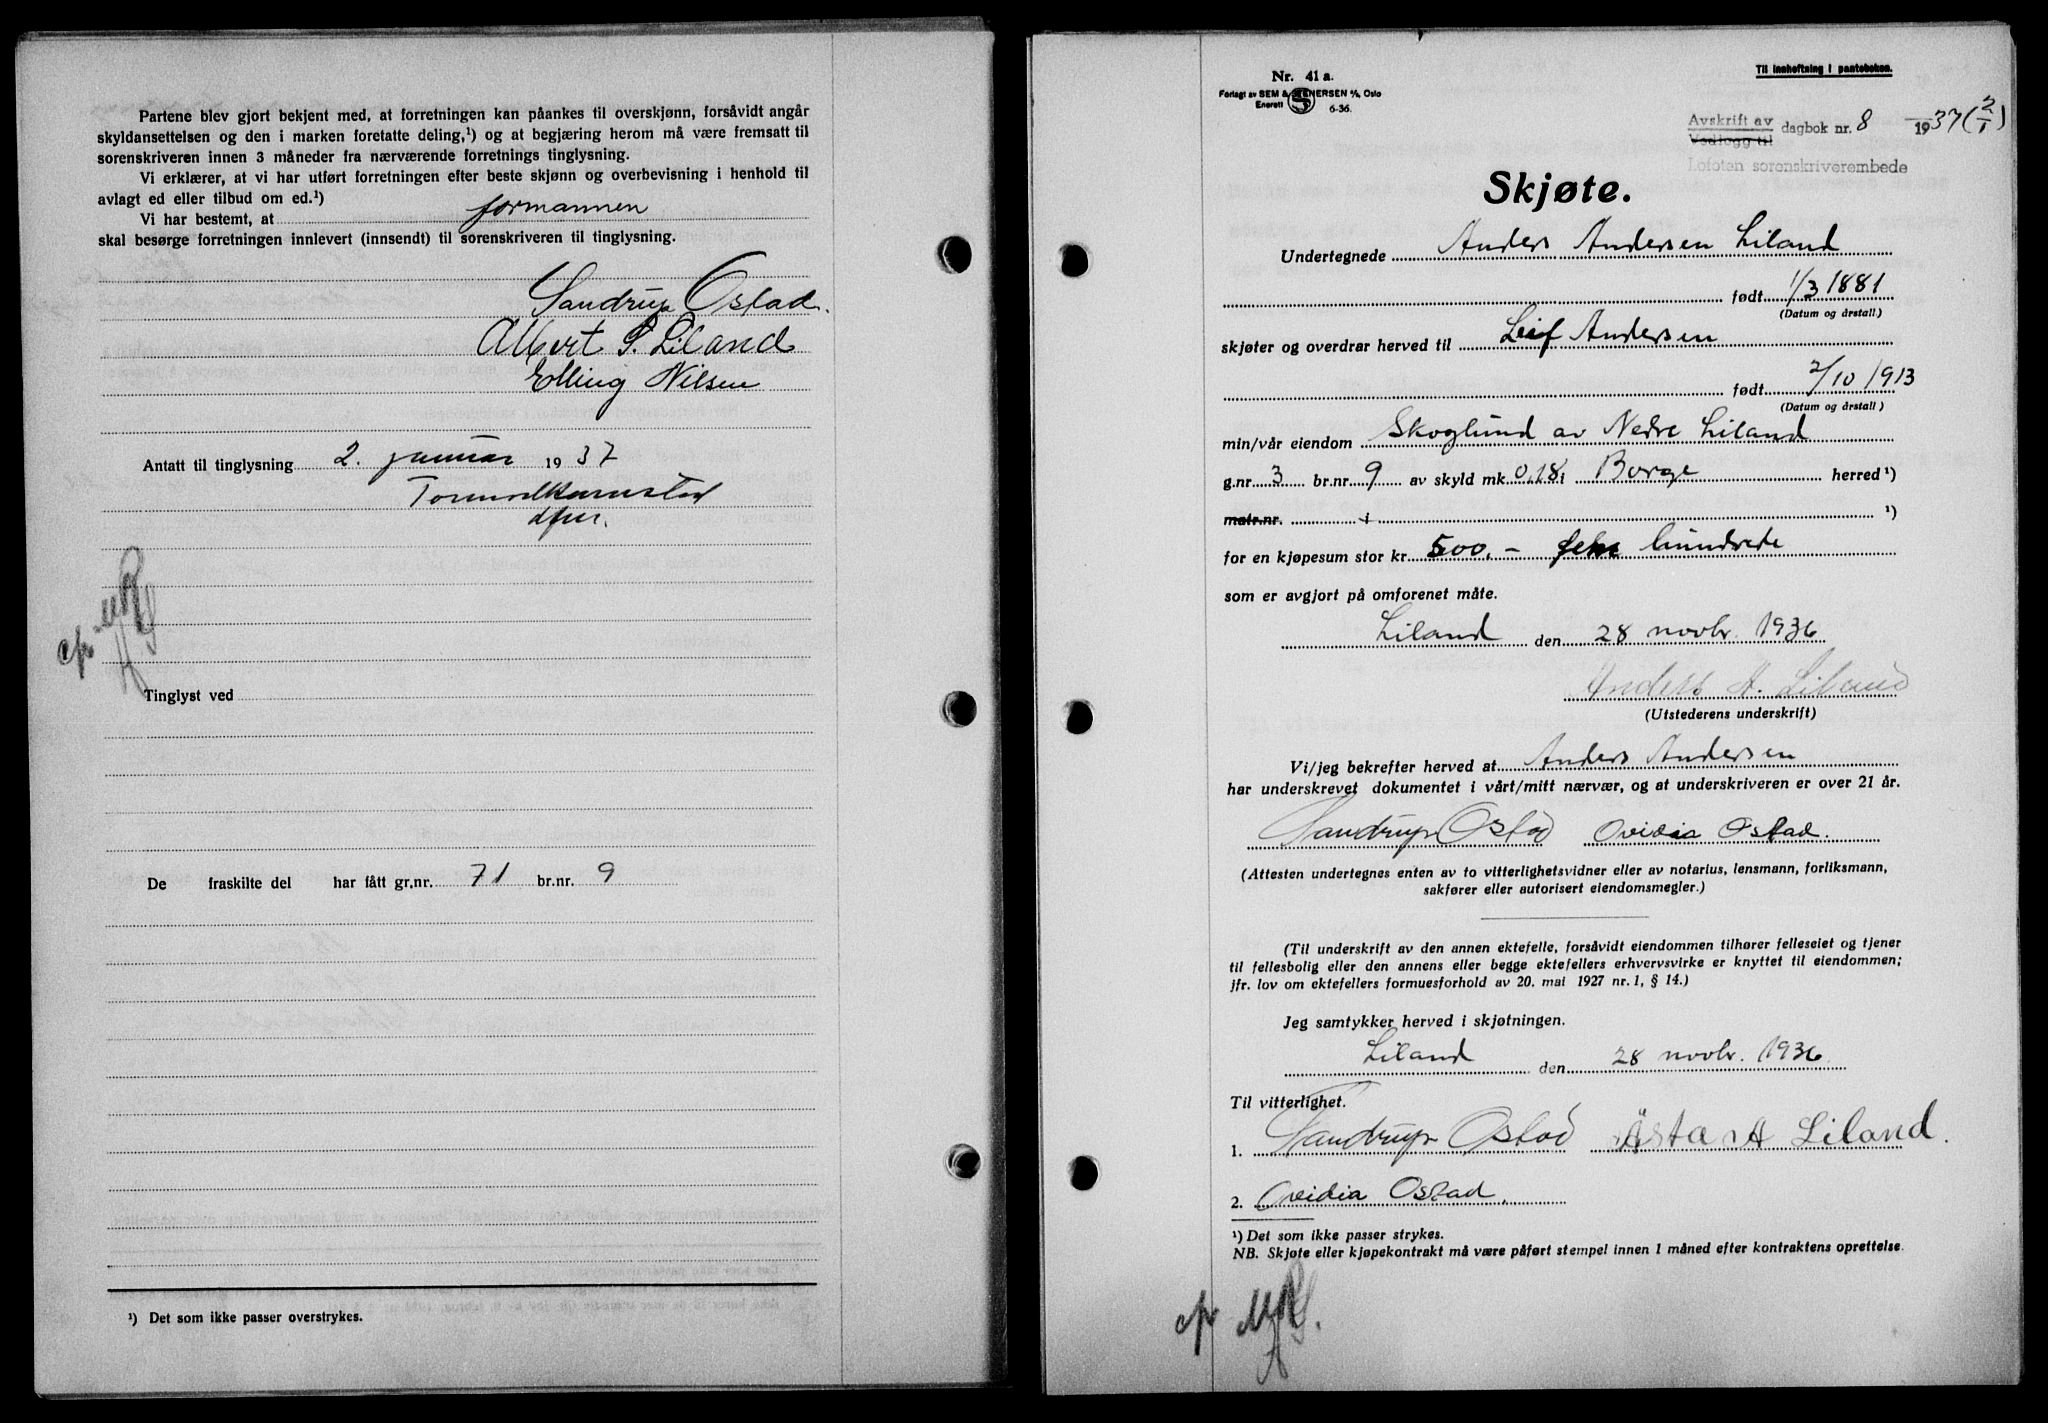 Partene blev gjort bekjent med, at forretningen kan påankes til overskjønn, forsåvidt angår
skyldansettelsen og den i marken foretatte deling,¹) og at begjæring herom må være fremsatt til
sorenskriveren innen 3 måneder fra nærværende forretnings tinglysning.
Vi erklærer, at vi har utført forretningen efter beste skjønn og overbevisning i henhold til
avlagt ed eller tilbud om ed.¹)
Vi har bestemt, at formannen
skal besørge forretningen innlevert (innsendt) til sorenskriveren til tinglysning.
Sandrup Ostad.
Albert S. Liland
Elling Nilsen
Antatt til tinglysning 2. januar 1937
dfm.
Tinglyst ved
De fraskilte del har fått gr.nr. 71 br.nr. 9
¹) Det som ikke passer overstrykes.
Til innheftning i panteboken.
Nr. 41 a.
Forlagt av SEM & STENERSEN A/S, Oslo
Enerett 6-36.
Avskrift av
Vedlegg til dagbok nr. 8 1937 (2/1)
Lofoten sorenskriverembede
Skjøte.
Undertegnede Anders Andersen Liland
født 1/3 1881
(Datum og årstall.)
skjøter og overdrar herved til Leif Andersen
født 2/10 1913
(Datum og årstall)
min/vår eiendom Skoglund av Nedre Liland
g.nr 3 br.nr 9 av skyld mk 0,18 i Borge herred ¹)
matr.nr. i ¹)
for en kjøpesum stor kr 500,- fem hundrede
som er avgjort på omforenet måte.
Liland den 28 novbr. 1936
Anders A. Liland
(Utstederens underskrift)
Vi/jeg bekrefter herved at Anders Andersen
har underskrevet dokumentet i vårt/mitt nærvær, og at underskriveren er over 21 år.
Sandrup Ostad Ovidia Ostad.
(Attesten undertegnes enten av to vitterlighetsvidner eller av notarius, lensmann, forliksmann,
sakfører eller autorisert eiendomsmegler.)
(Til underskrift av den annen ektefelle, forsåvidt eiendommen tilhører felleseiet og tjener
til fellesbolig eller den annens eller begge ektefellers erhvervsvirke er knyttet til eiendommen;
jfr. lov om ektefellers formuesforhold av 20. mai 1927 nr. 1, § 14.)
Jeg samtykker herved i skjøtningen.
Liland den 28 novbr. 1936
Til vitterlighet.
1. Sandrup Ostad Asta A Liland.
2. Ovidia Ostad.
¹) Det som ikke passer strykes.
NB. Skjøte eller kjøpekontrakt må være påført stempel innen 1 måned efter kontraktens oprettelse.